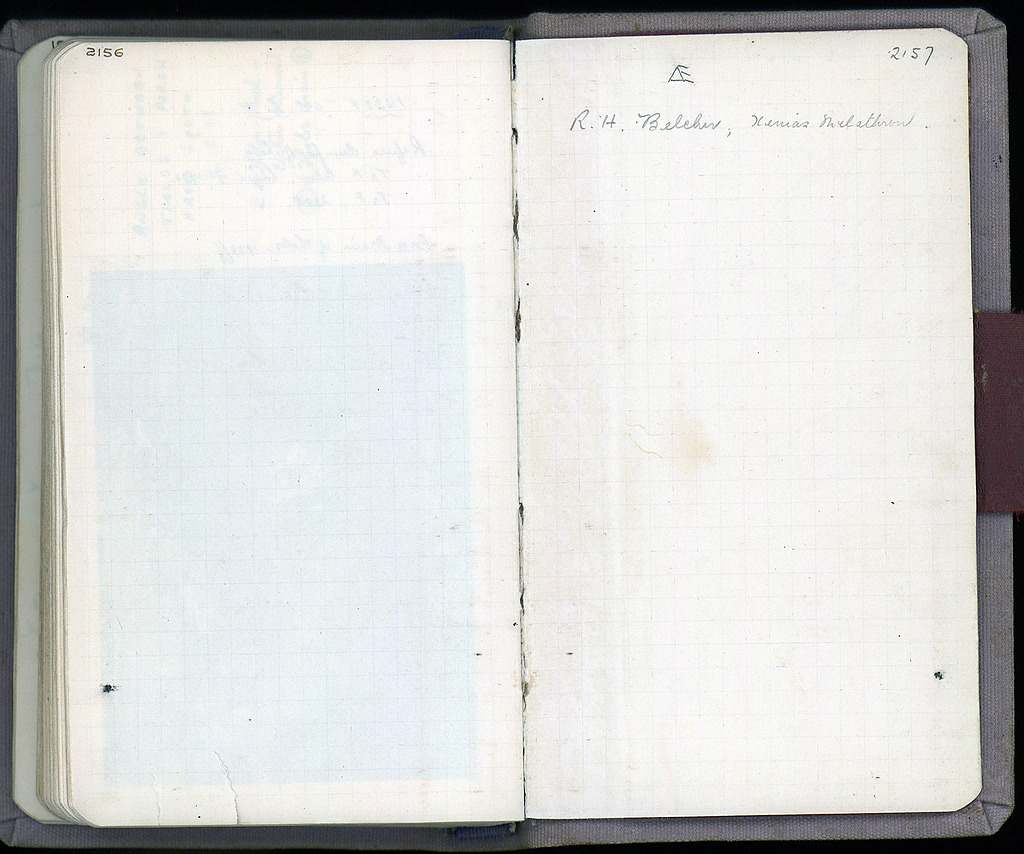 2156
2157
Æ
R. H. Belcher, Xenias Melathron.